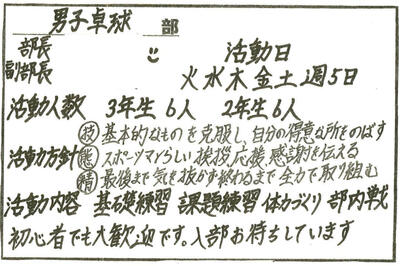 男子卓球 部
部長 活動日
副部長 火水木金土週5日
活動人数 3年生 6人 2年生 6人
技 基本的なものを克服し、自分の得意な所をのばす
活動方針 態 スポーツマンらしい挨拶、応援、感謝を伝える
精 最後まで気を抜かず終わるまで全力で取り組む
活動内容 基礎練習 課題練習 体力づくり 部内戦
初心者でも大歓迎です。入部お待ちしています